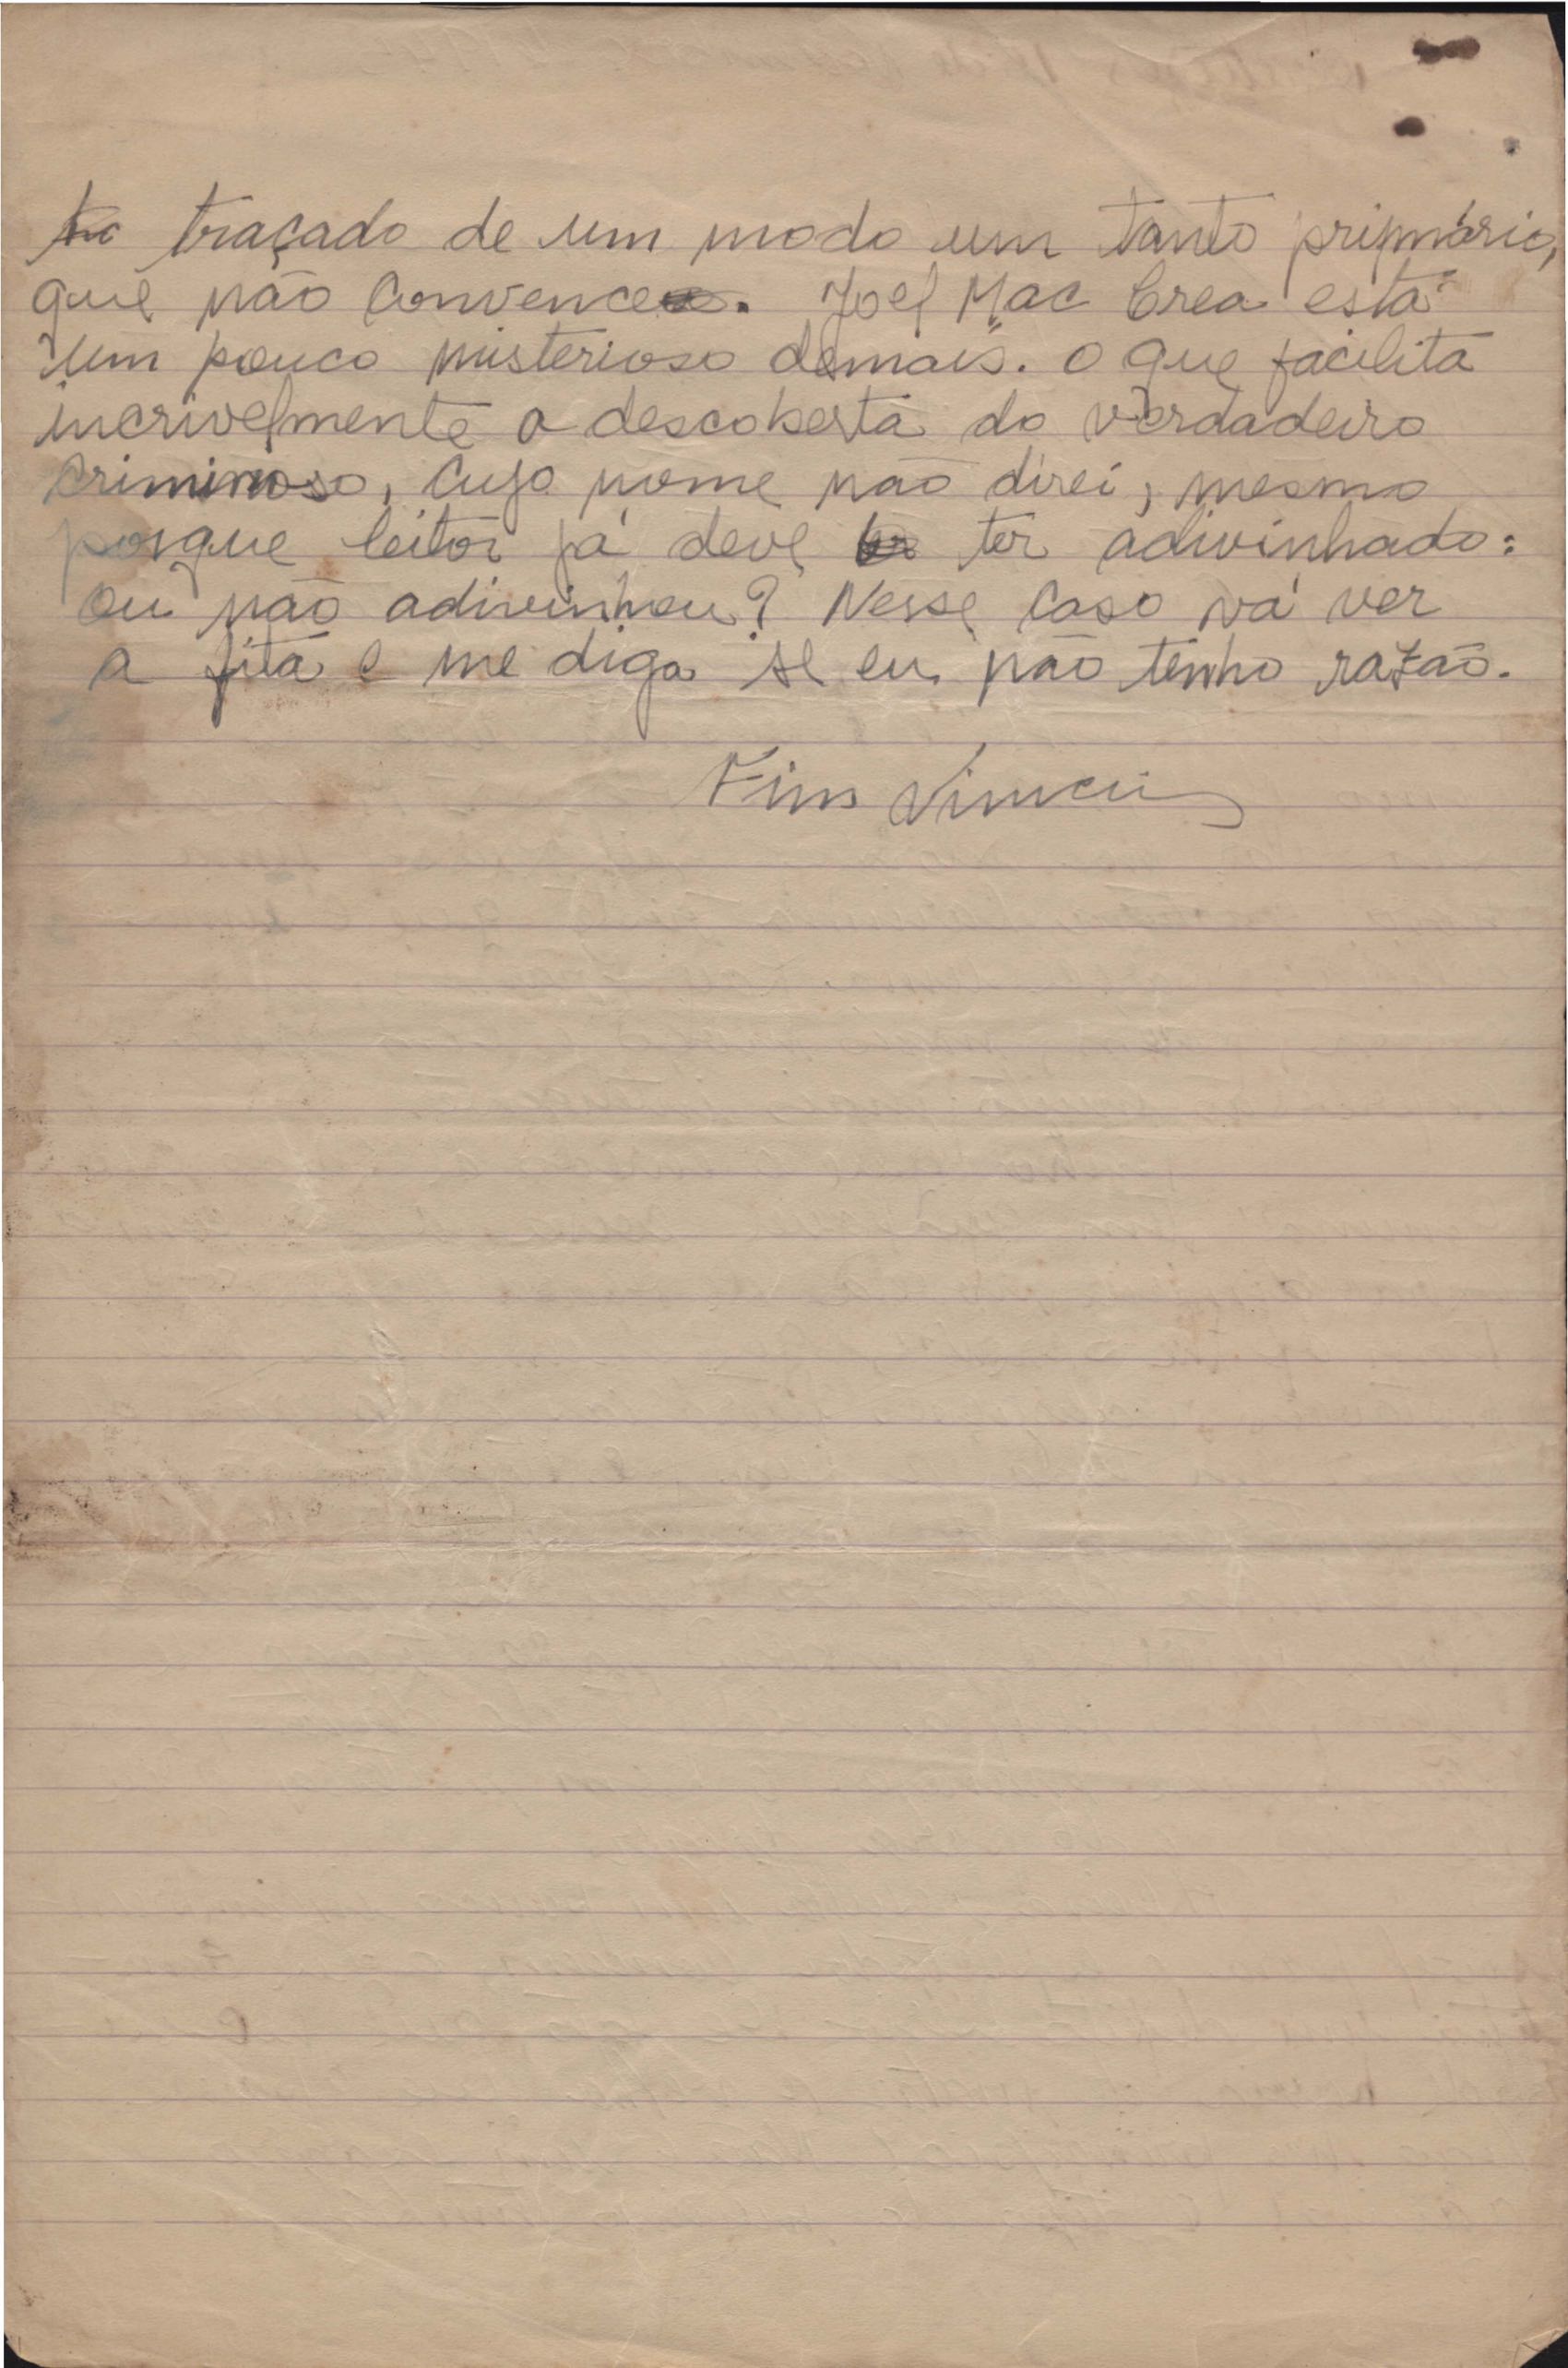 traçado de um modo um tanto primário,
que não convence. Joel Mac Crea está
um pouco misterioso demais. O que facilita
incrivelmente a descoberta do verdadeiro
criminoso, cujo nome não direi, mesmo
porque leitor já deve ter adivinhado:
ou não adivinhou? Nesse caso vá ver
a fita e me diga se eu não tenho razão.